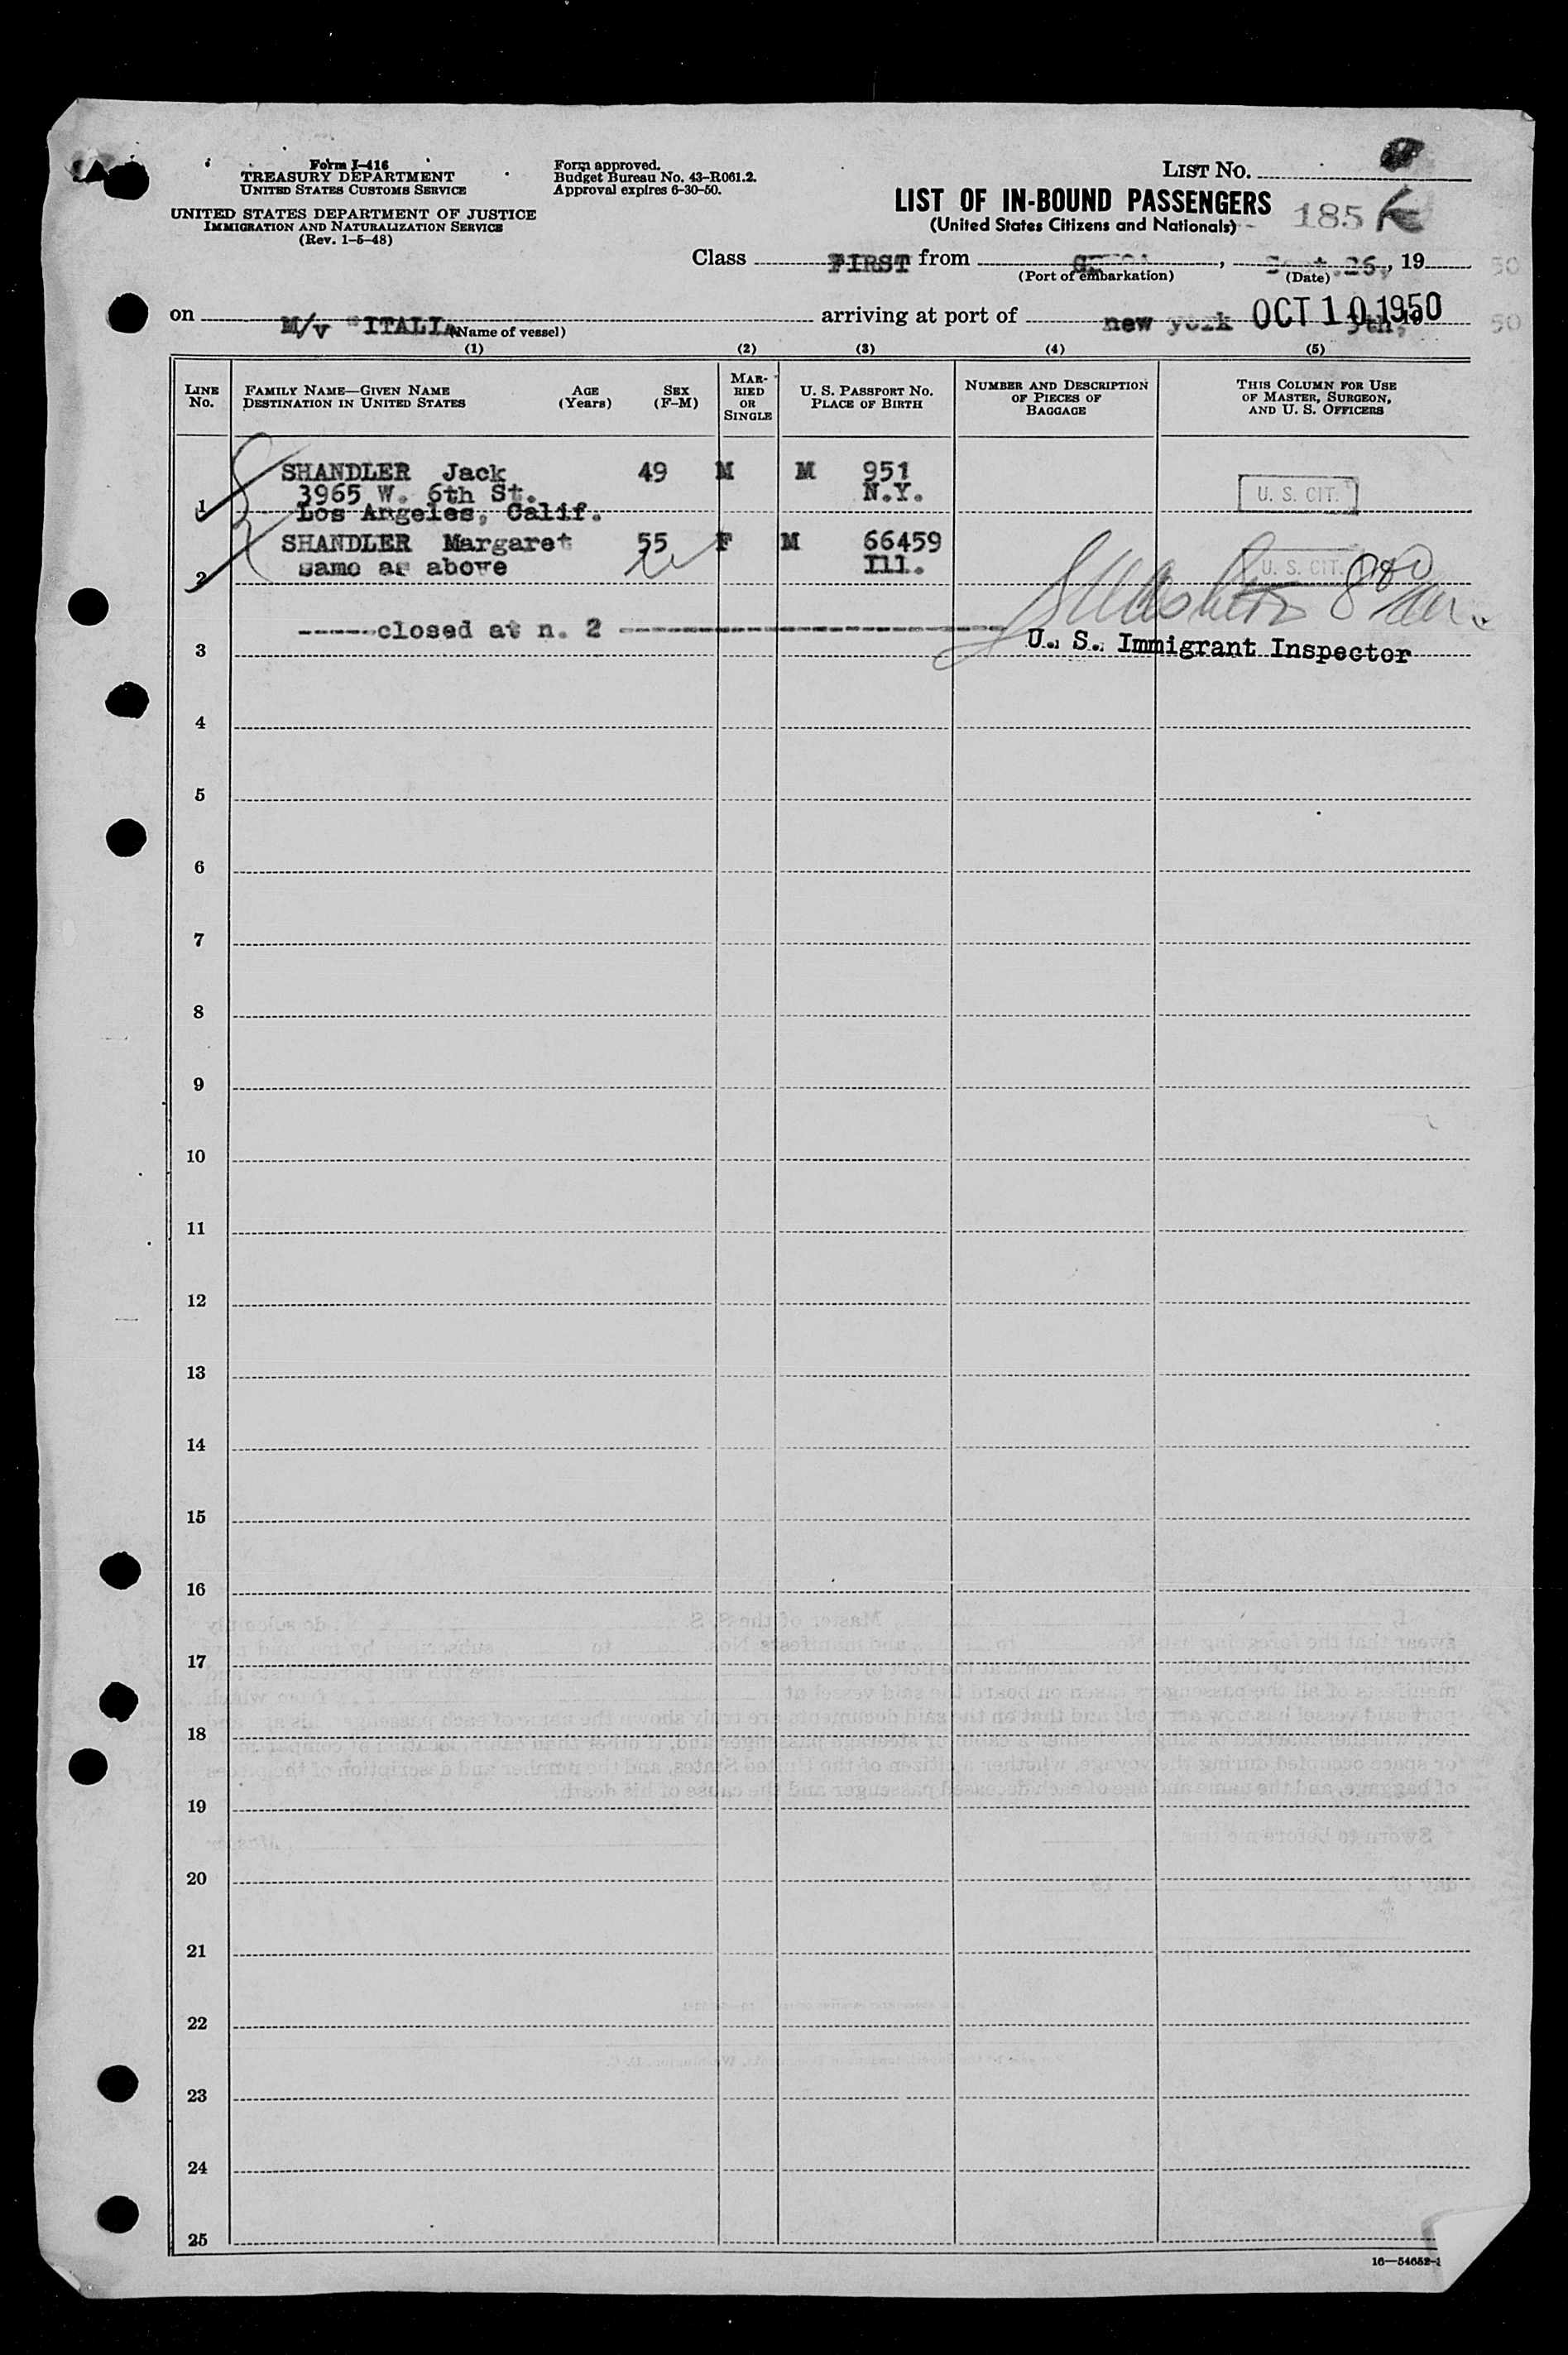 Form I-416
TREASURY DEPARTMENT
UNITED STATES CUSTOMS SERVICE
UNITED STATES DEPARTMENT OF JUSTICE
IMMIGRATION AND NATURALIZATION SERVICE
(Rev. 1-5-48)
Form approved.
Budget Bureau No. 43-R061.2.
Approval expires 6-30-50.
LIST No.
LIST OF IN-BOUND PASSENGERS
(United States Citizens and Nationals)
185
Class FIRST from , Sept.26, 19 50
(Port of embarkation) (Date)
on M/v "ITALIA arriving at port of new york OCT 10 1950 9th, 50
(Name of vessel)
(1) (2) (3) (4) (5)
LINE No.
FAMILY NAME—GIVEN NAME
DESTINATION IN UNITED STATES
AGE (Years)
SEX (F-M)
MARRIED OR SINGLE
U. S. PASSPORT No.
PLACE OF BIRTH
NUMBER AND DESCRIPTION
OF PIECES OF
BAGGAGE
THIS COLUMN FOR USE
OF MASTER, SURGEON,
AND U. S. OFFICERS
SHANDLER Jack 49 M M 951
3965 W. 6th St. N.Y. U. S. CIT.
1 Los Angeles, Calif.
SHANDLER Margaret 55 F M 66459
2 same as above Ill. U. S. CIT.
-----closed at n. 2
3 U. S. Immigrant Inspector
4
5
6
7
8
9
10
11
12
13
14
15
16
17
18
19
20
21
22
23
24
25